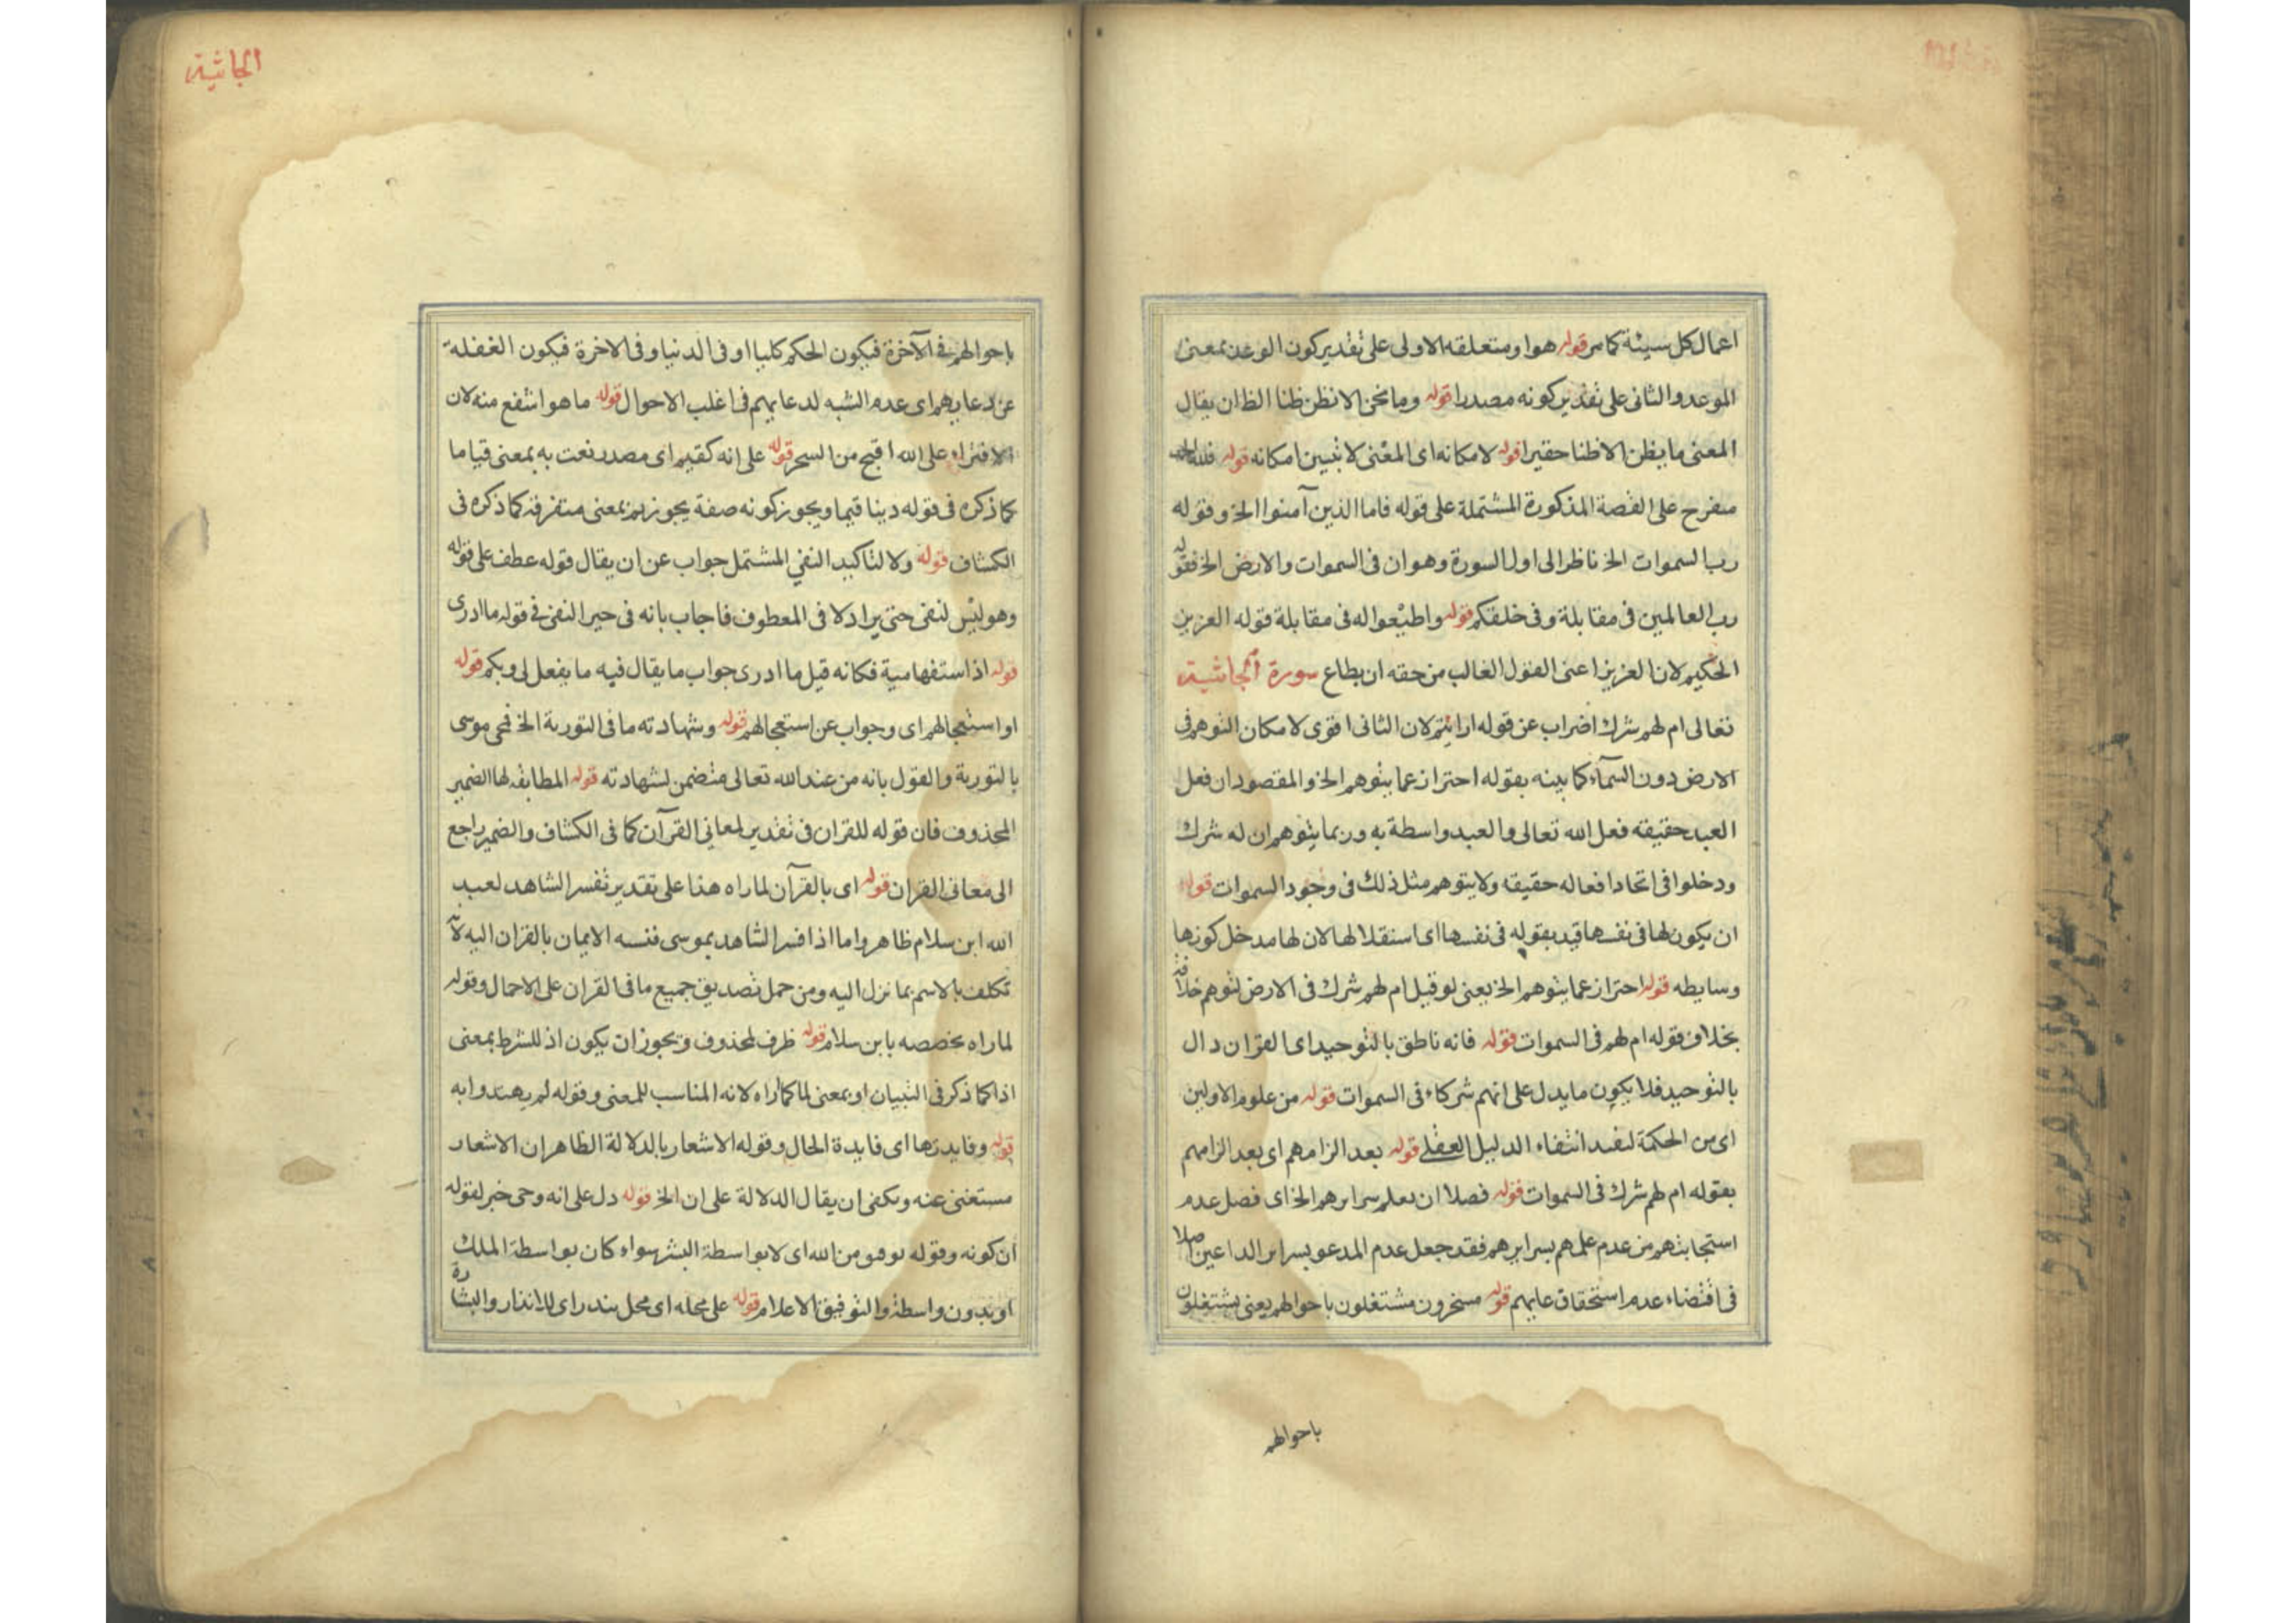 اعمال كل سيئة كما مر قوله هوا ومتعلقه الاولى على تقدير كون الوعد بمعنى
الموعد والثانى على تقدير كونه مصدرا قوله وما نحن الا نظن ظنا الظ ان يقال
المعنى ما يظن الا ظنا حقيرا قوله لامكانه اى المعنى لا نبين امكانه قوله فلله الحمد
متفرع على القصة المذكورة المشتملة على قوله فاما الذين آمنوا الخ وقوله
رب السموات الخ ناظر الى اول السورة وهو ان فى السموات والارض الخ فقوله
رب العالمين فى مقابلة وفى خلقكم قوله واطيعوا له فى مقابلة قوله العزيز
الحكيم لان العزيز اعنى الغالب من حقه ان يطاع سورة الجاثية
تعالى ام لهم شرك اضراب عن قوله ارايتم لان الثانى اقوى لامكان التوهم فى
الارض دون السمآء كما بينه بقوله احتراز عما يتوهم الخ والمقصود ان فعل
العبد حقيقه فعل الله تعالى والعبد واسطة به وربما يتوهم ان له شرك
ودخلوا فى اتحاد افعاله حقيقه ولا يتوهم مثل ذلك فى وجود السموات قوله
ان يكون لها فى نفسها قيد بقوله فى نفسها اى استقلالها لان لها مدخل كونها
وسايطه قوله احتراز عما يتوهم الخ يعنى لو قيل ام لهم شرك فى الارض لتوهم خلافه
بخلاف قوله ام لهم فى السموات قوله فانه ناطق بالتوحيد اى القران دال
بالتوحيد فلا يكون ما يدل على انهم شركاء فى السموات قوله من علوم الاولين
اى من الحكمة لنفيد انتفاء الدليل العقلى قوله بعد الزامهم اى بعد الزامهم
بقوله ام لهم شرك فى السموات قوله فصلا ان يعلم سرايرهم الخ اى فصل عدم
استجابتهم من عدم علمهم بسرايرهم فقد جعل عدم المدعو بسراير الداعين اصلا
فى اقتضاء عدم استحقاق عابهم قوله مسخرون مشتغلون باحوالهم يعنى يشتغلون
باحوالهم
الجاثية
باحوالهم فى الآخرة فيكون الحكم كليا او فى الدنيا وفى الاخرة فيكون الغفلة
عن دعايهم اى عدم الشبه لدعايهم فى اغلب الاحوال قوله ما هو اشفع منه لان
الافتراء على الله اقبح من السحر قوله على انه كقيم اى مصدر نعت به بمعنى قياما
كما ذكره فى قوله دينا قيما ويجوز كونه صفة بمعنى متفرقة كما ذكره فى
الكشاف قوله ولا لتاكيد النفى المشتمل جواب عن ان يقال قوله عطف على قوله
وهو ليس لنفى حتى يراد لا فى المعطوف فاجاب بانه فى حيز النفى فى قوله ما ادرى
قوله اذ استفهامية فكانه قيل ما ادرى جواب ما يقال فيه ما يفعل لى وبكم قوله
او استعجالهم اى وجواب عن استعجالهم قوله وشهادته ما فى التورية الخ فحى موسى
بالتورية والقول بانه من عند الله تعالى متضمن لشهادته قوله المطابقه لها الضمير
المحذوف فان قوله للقران فى تقدير لمعانى القرآن كما فى الكشاف والضمير راجع
الى معانى القران قوله اى بالقرآن لما راه هذا على تقدير تفسر الشاهد لعبد
الله ابن سلام ظاهر واما اذا فسر الشاهد بموسى فنسبه الايمان بالقران اليه لانه
تكلف بالاسم بما نزل اليه ومن حمل تصديق جميع ما فى القران على الاجمال وقوله
لما راه يخصصه بابن سلام قوله ظرف لمحذوف ويجوز ان يكون اذ للشرط بمعنى
اذا كما ذكر فى التبيان او بمعنى لما كما راه لانه المناسب للمعنى وقوله لم يهتدوا به
قوله وفايدتها اى فايدة الحال وقوله الاشعار بالدلالة الظاهر ان الاشعار
مستغنى عنه ويكفى ان يقال الدلالة على ان الخ قوله دل على انه وحى خبر لقوله
ان كونه وقوله توقيف من الله اى لا بواسطة البشر سواء كان بواسطة الملك
او بدون واسطة والتوقيف الاعلام قوله على محله اى محل ينذر اى للانذار والبشارة